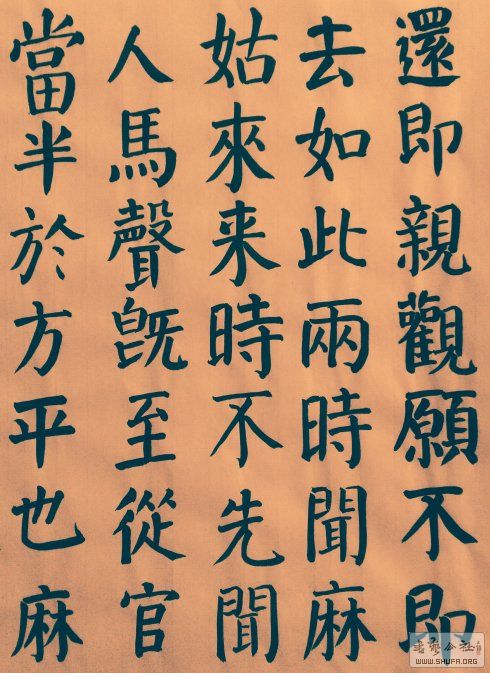 還即親觀願不即
去如此兩時聞麻
姑來来時不先聞
人馬聲旣至從官
當半於方平也麻
WWW.SHUFA.ORG